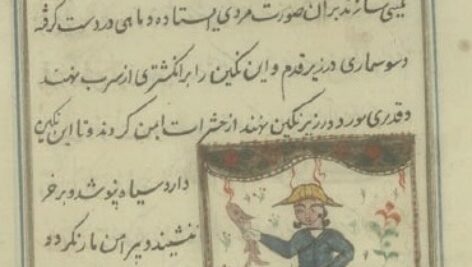 نگینی سازند بران صورت مردی ایستاده و ماهی در دست گرفته
و سوسماری در زیر قدم و این نگین را بر انگشتری از سرب نهند
و قدری مورد در زیر نگین نهند از حشرات ایمن کردند و تا این نگین
دارد سیاه نپوشد و بر خر
ننشیند و پیرامن مار نکردد